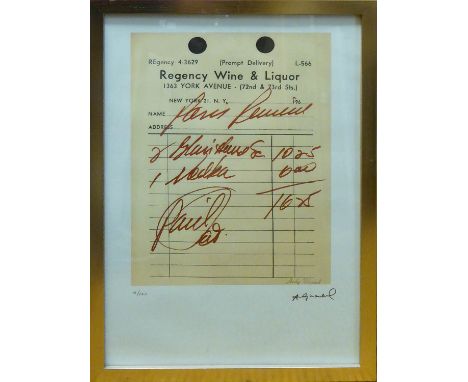 REgency 4-3629 (Prompt Delivery) L-566
Regency Wine & Liquor
1363 YORK AVENUE - (72nd & 73rd Sts.)
NEW YORK 21, N. Y., 196
NAME
ADDRESS
2 10 25
1 Vodka 6 00
16 25
Paid
Andy Warhol